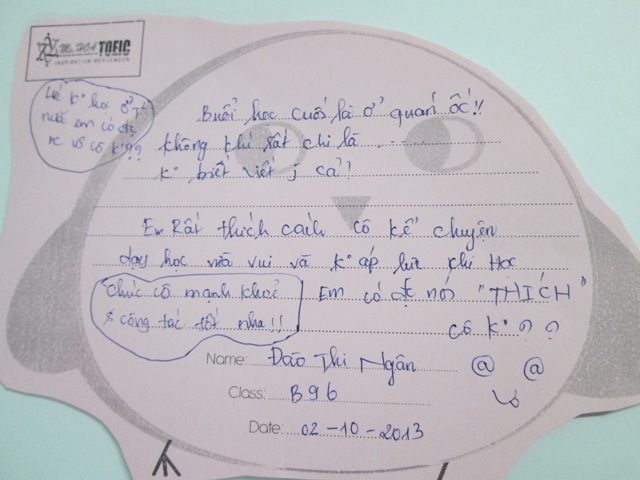 Ms. HOA TOEIC
INSPIRATION MESSENGER
Buổi học cuối là ở quán ốc!!
không khí rất chi là ...........
k° biết viết j cả!
Em Rất thích cách cô kể chuyện
dạy học vừa vui và k° áp lực khi Học
Em có đc nói "THÍCH"
cô k° ? ?
k° học ở
nữa em có đc
cô k° ??
Chúc cô mạnh khoẻ
& công tác tốt nha!!
Name: Đào Thị Ngân @ @
Class: B96
Date: 02-10-2013